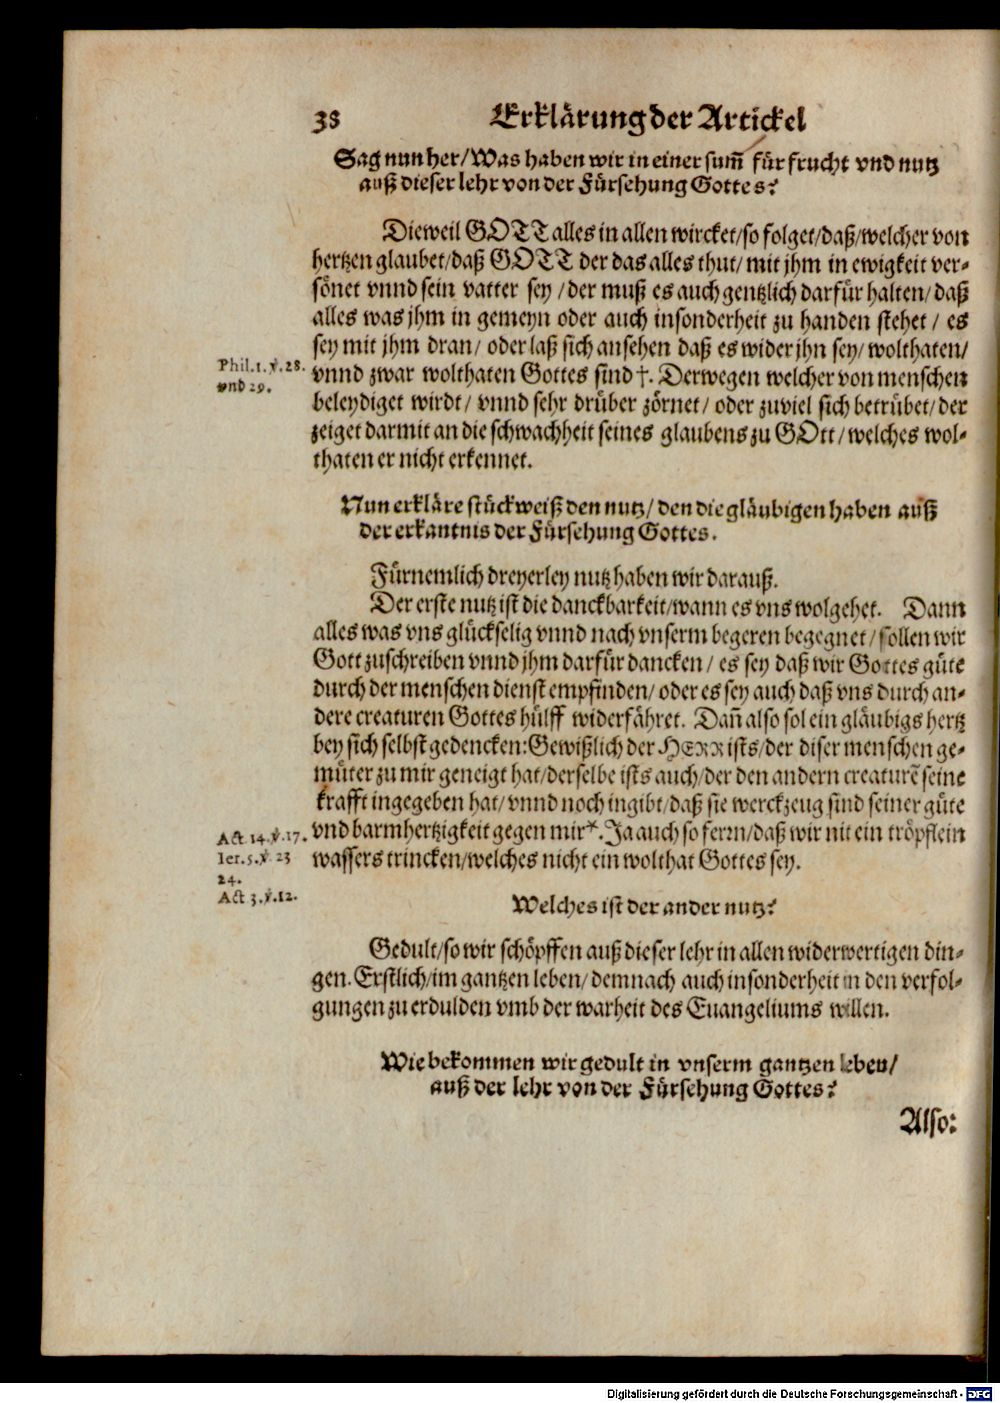 38 Erklärung der Artickel
Sag nun her/Was haben wir in einer sum̃ für frucht vnd nutz
auß dieser lehr von der Fürsehung Gottes?
Dieweil GOTT alles in allen wircket/so folget/daß/welcher von
hertzen glaubet/daß GOTT der das alles thut/ mit jhm in ewigkeit ver-
sönet vnnd sein vatter sey /der muß es auch gentzlich darfür halten/daß
alles was jhm in gemeyn oder auch insonderheit zu handen stehet / es
sey mit jhm dran/ oder laß sich ansehen daß es wider jhn sey/ wolthaten/
Phil.1.v̈.28.
vnd 29.
vnnd zwar wolthaten Gottes sind †. Derwegen welcher von menschen
beleydiget wirdt/ vnnd sehr drüber zörnet/ oder zuviel sich betrübet/der
zeiget darmit an die schwachheit seines glaubens zu GOtt/welches wol-
thaten er nicht erkennet.
Nun erkläre stückweiß den nutz/ den die gläubigen haben auß
der erkantnis der Fürsehung Gottes.
Fürnemlich dreyerley nutz haben wir darauß.
Der erste nutz ist die danckbarkeit/wann es vns wolgehet. Dann
alles was vns glückselig vnnd nach vnserm begeren begegnet/sollen wir
Gott zuschreiben vnnd jhm darfür dancken/ es sey daß wir Gottes güte
durch der menschen dienst empfinden/ oder es sey auch daß vns durch an-
dere creaturen Gottes hülff widerfähret. Dañ also sol ein gläubigs hertz
bey sich selbst gedencken:Gewißlich der HERR ists/der diser menschen ge-
müter zu mir geneigt hat/derselbe ists auch/der den andern creaturẽ seine
krafft ingegeben hat/vnnd noch ingibt/daß sie werckzeug sind seiner güte
Act 14.v̈.17.
Ier.5.v̈ 23
24.
Act 3.v̈.12.
vnd barmhertzigkeit gegen mir*.Ja auch so ferrn/daß wir nit ein tröpflein
wassers trincken/welches nicht ein wolthat Gottes sey.
Welches ist der ander nutz?
Gedult/so wir schöpffen auß dieser lehr in allen widerwertigen din-
gen. Erstlich/im gantzen leben/ demnach auch insonderheit in den verfol-
gungen zu erdulden vmb der warheit des Euangeliums willen.
Wie bekommen wir gedult in vnserm gantzen leben/
auß der lehr von der Fürsehung Gottes?
Also:
Digitalisierung gefördert durch die Deutsche Forschungsgemeinschaft - DFG